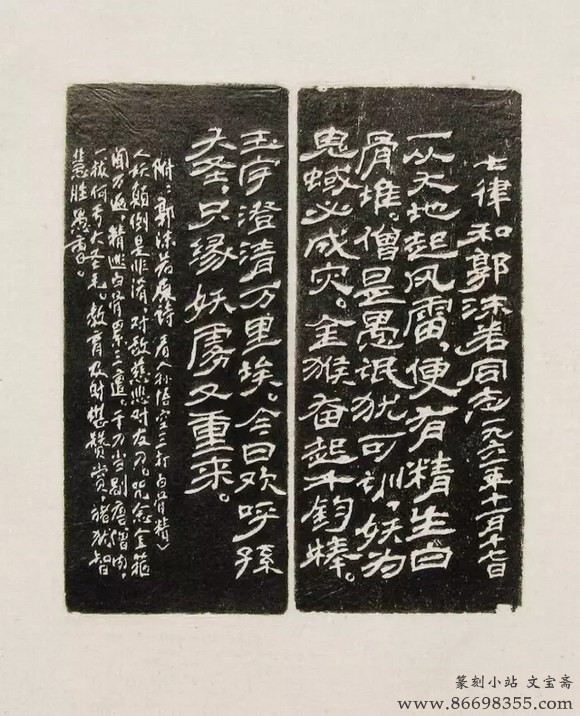 七律 和郭沫若同志 一九六一年十一月十七日
一从大地起风雷,便有精生白
骨堆。僧是愚氓犹可训,妖为
鬼蜮必成灾。金猴奋起千钧棒,
玉宇澄清万里埃。今日欢呼孙
大圣,只缘妖雾又重来。
附:郭沫若原诗 看人孙悟空三打白骨精》
人妖颠倒是非淆,对敌慈悲对友刁。咒念金箍
闻万遍,精逃白骨累三遭。千刀当剐唐僧肉,
一拔何亏大圣毛。教育及时堪赞赏,猪犹智
慧胜愚曹。
篆刻小站 文宝斋
www.86698355.com